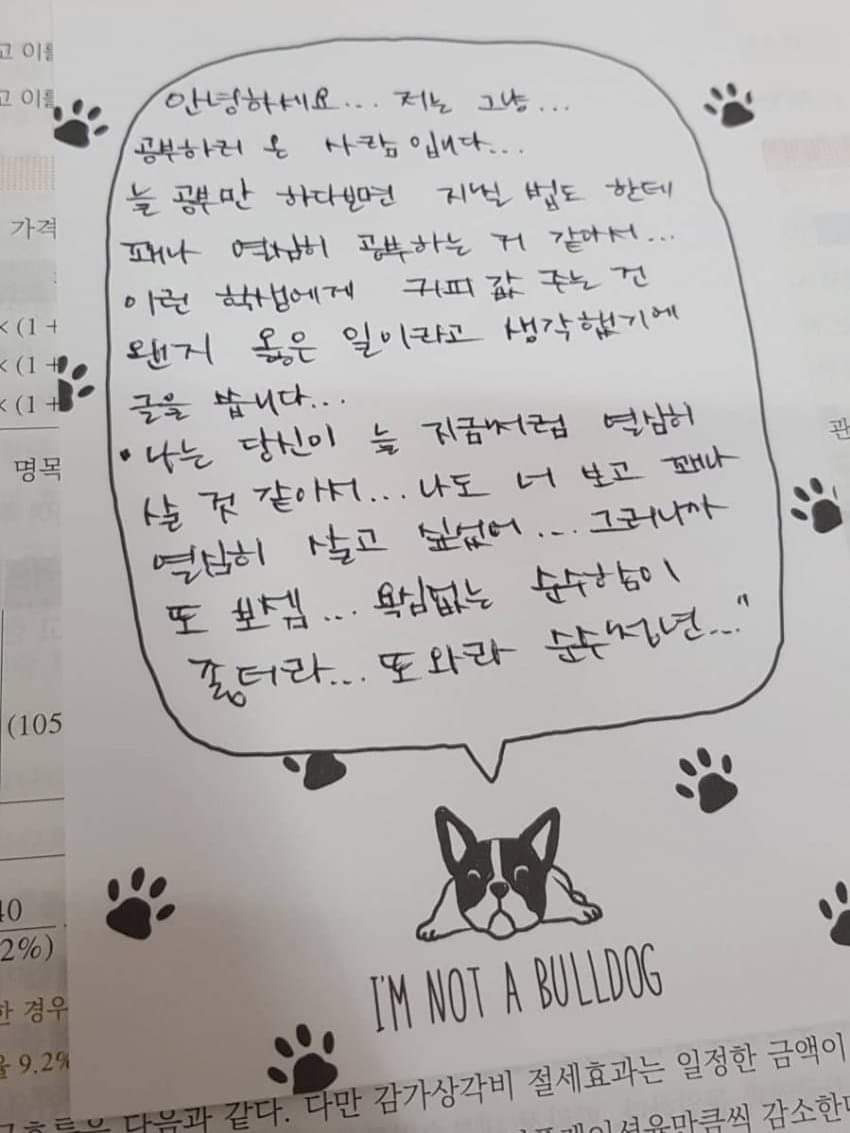 고 이를
고 이를
가격
× (1 +
× (1 +
× (1 +
명목
(105
40
2%)
한 경우
율 9.2%
관
안녕하세요... 저는 그냥...
공부하러 온 사람입니다...
늘 공부만 하다보면 지칠 법도 한데
꽤나 열심히 공부하는 거 같아서...
이런 학생에게 커피 값 주는 건
왠지 옳은 일이라고 생각했기에
글을 씁니다...
• 나는 당신이 늘 지금처럼 열심히
살 것 같아서... 나도 너 보고 꽤나
열심히 살고 싶었어... 그러니까
또 보셈... 욕심없는 순수함이
좋더라... 또 와라 순수청년..."
I'M NOT A BULLDOG
다음과 같다. 다만 감가상각비 절세효과는 일정한 금액이
감소한다